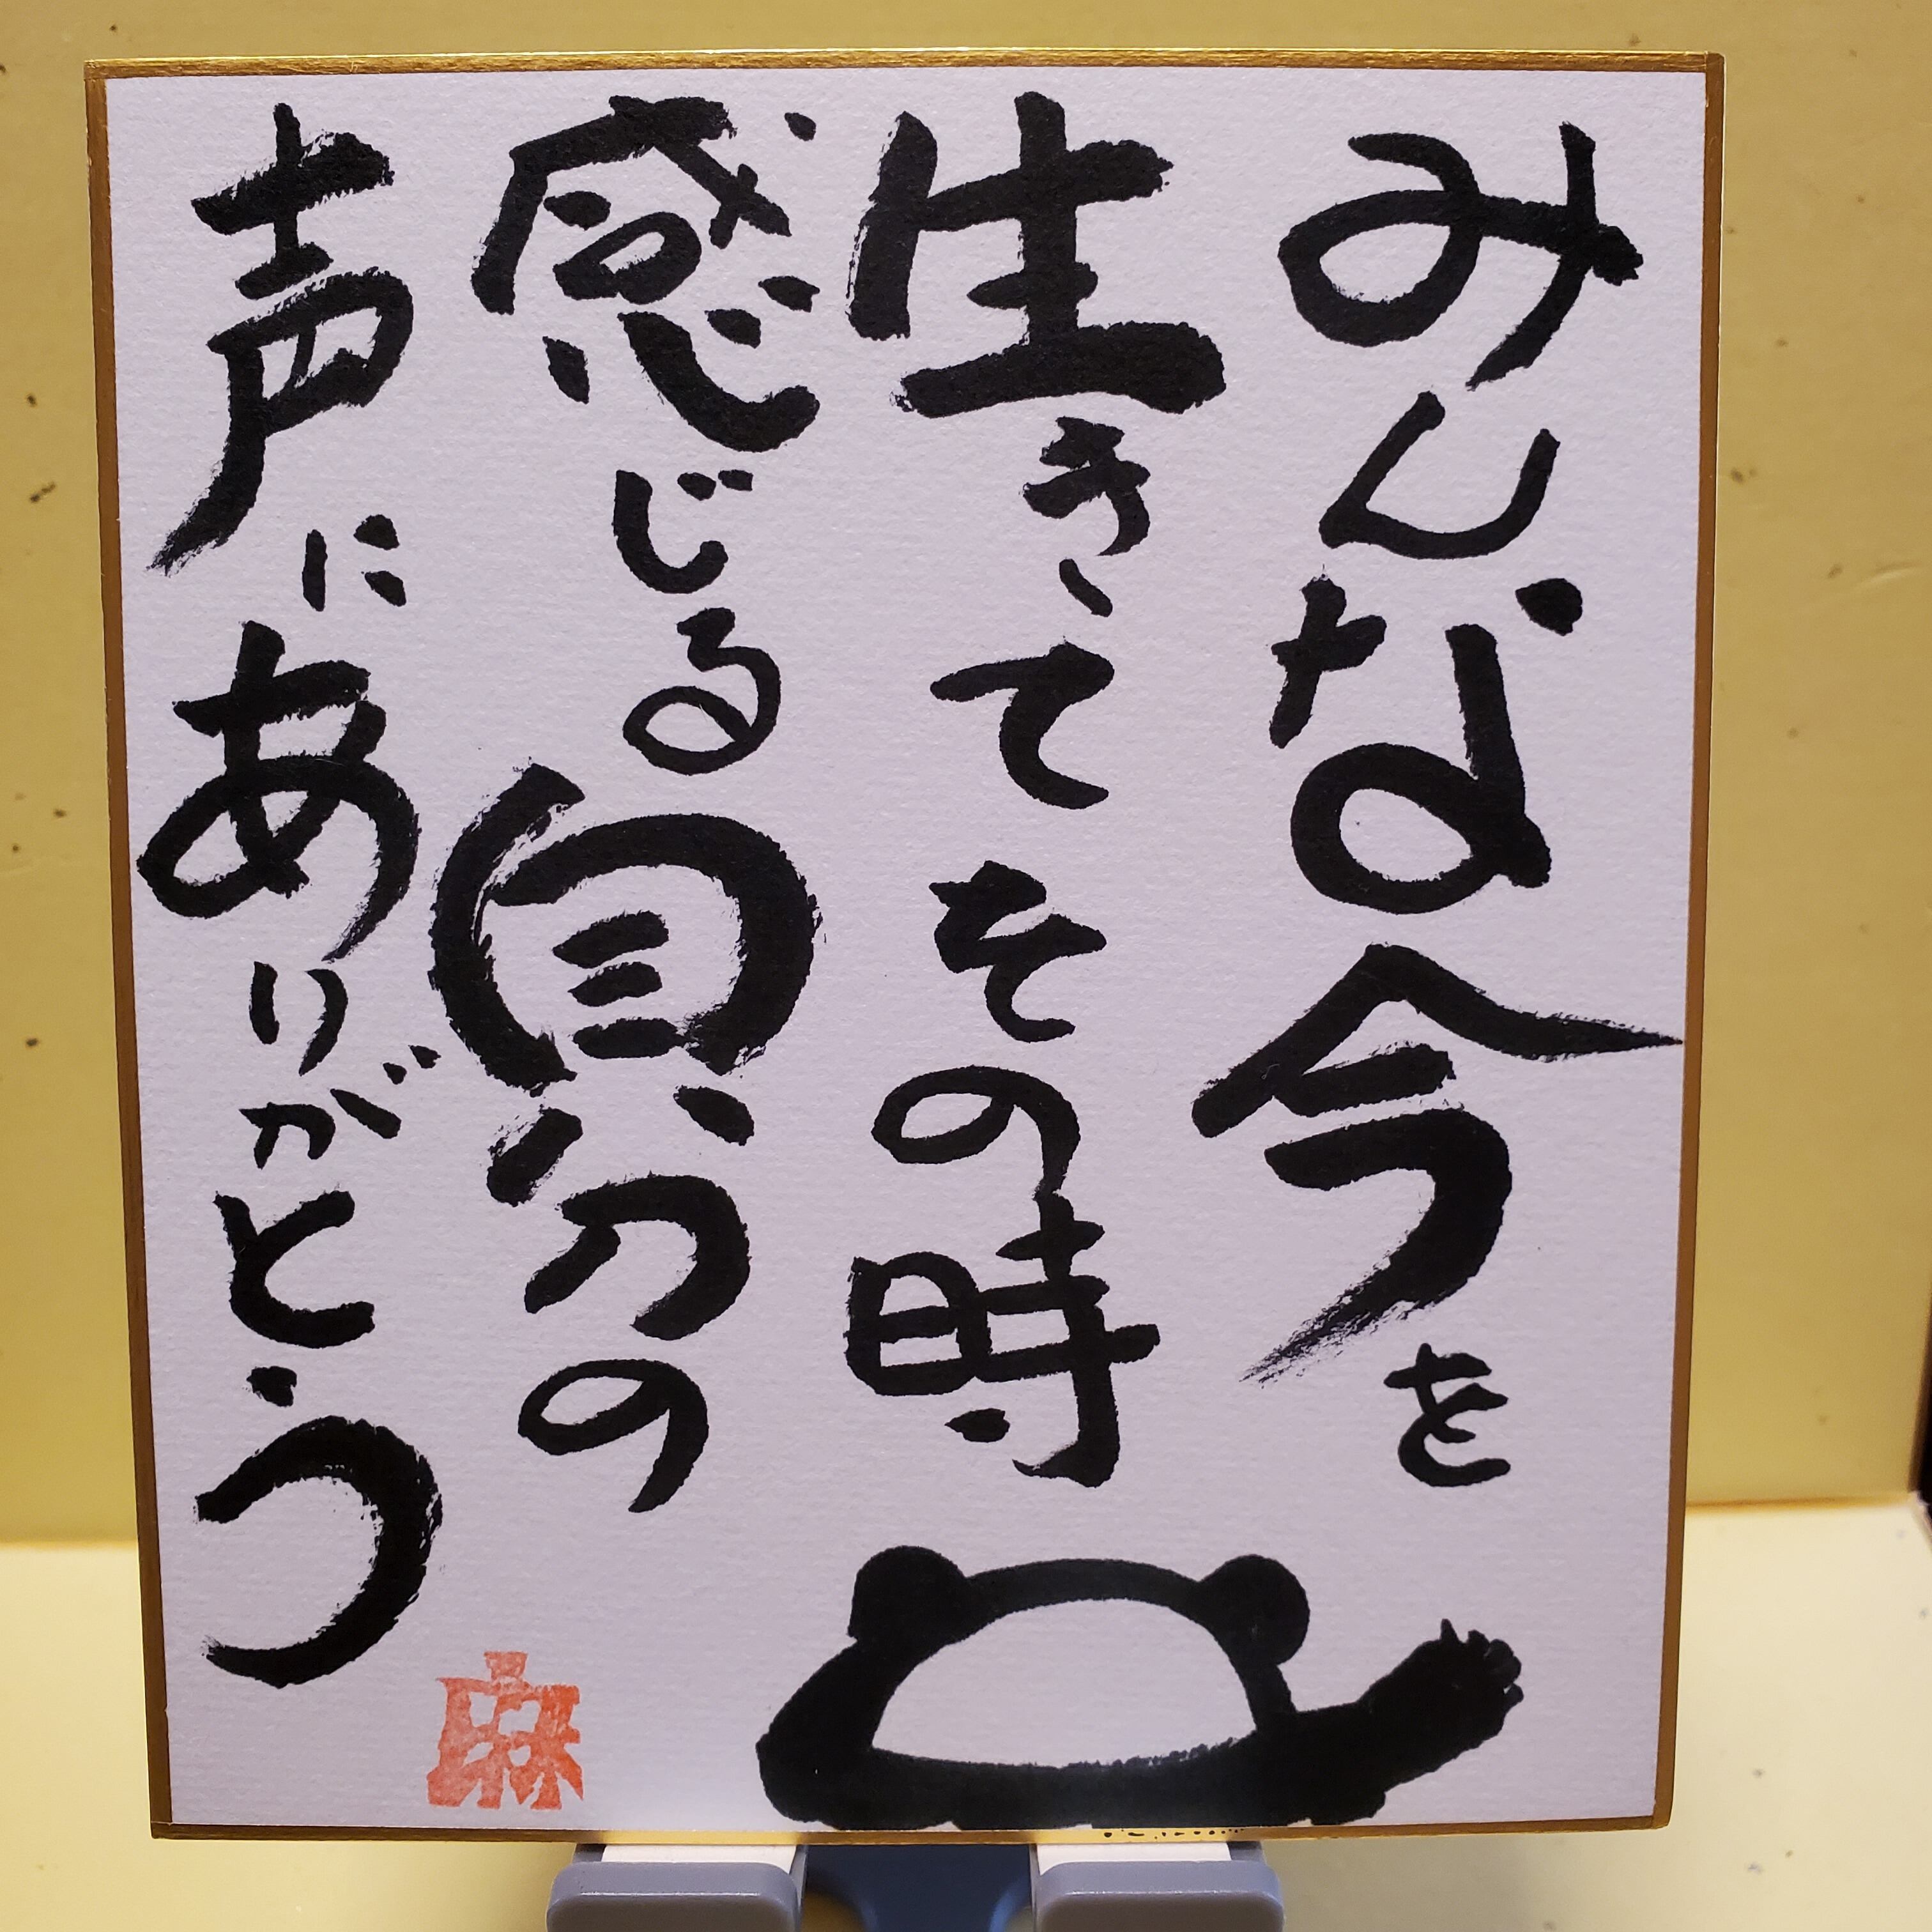 みんな今を
生きてその時
感じる自分の
声にありがとう
麻